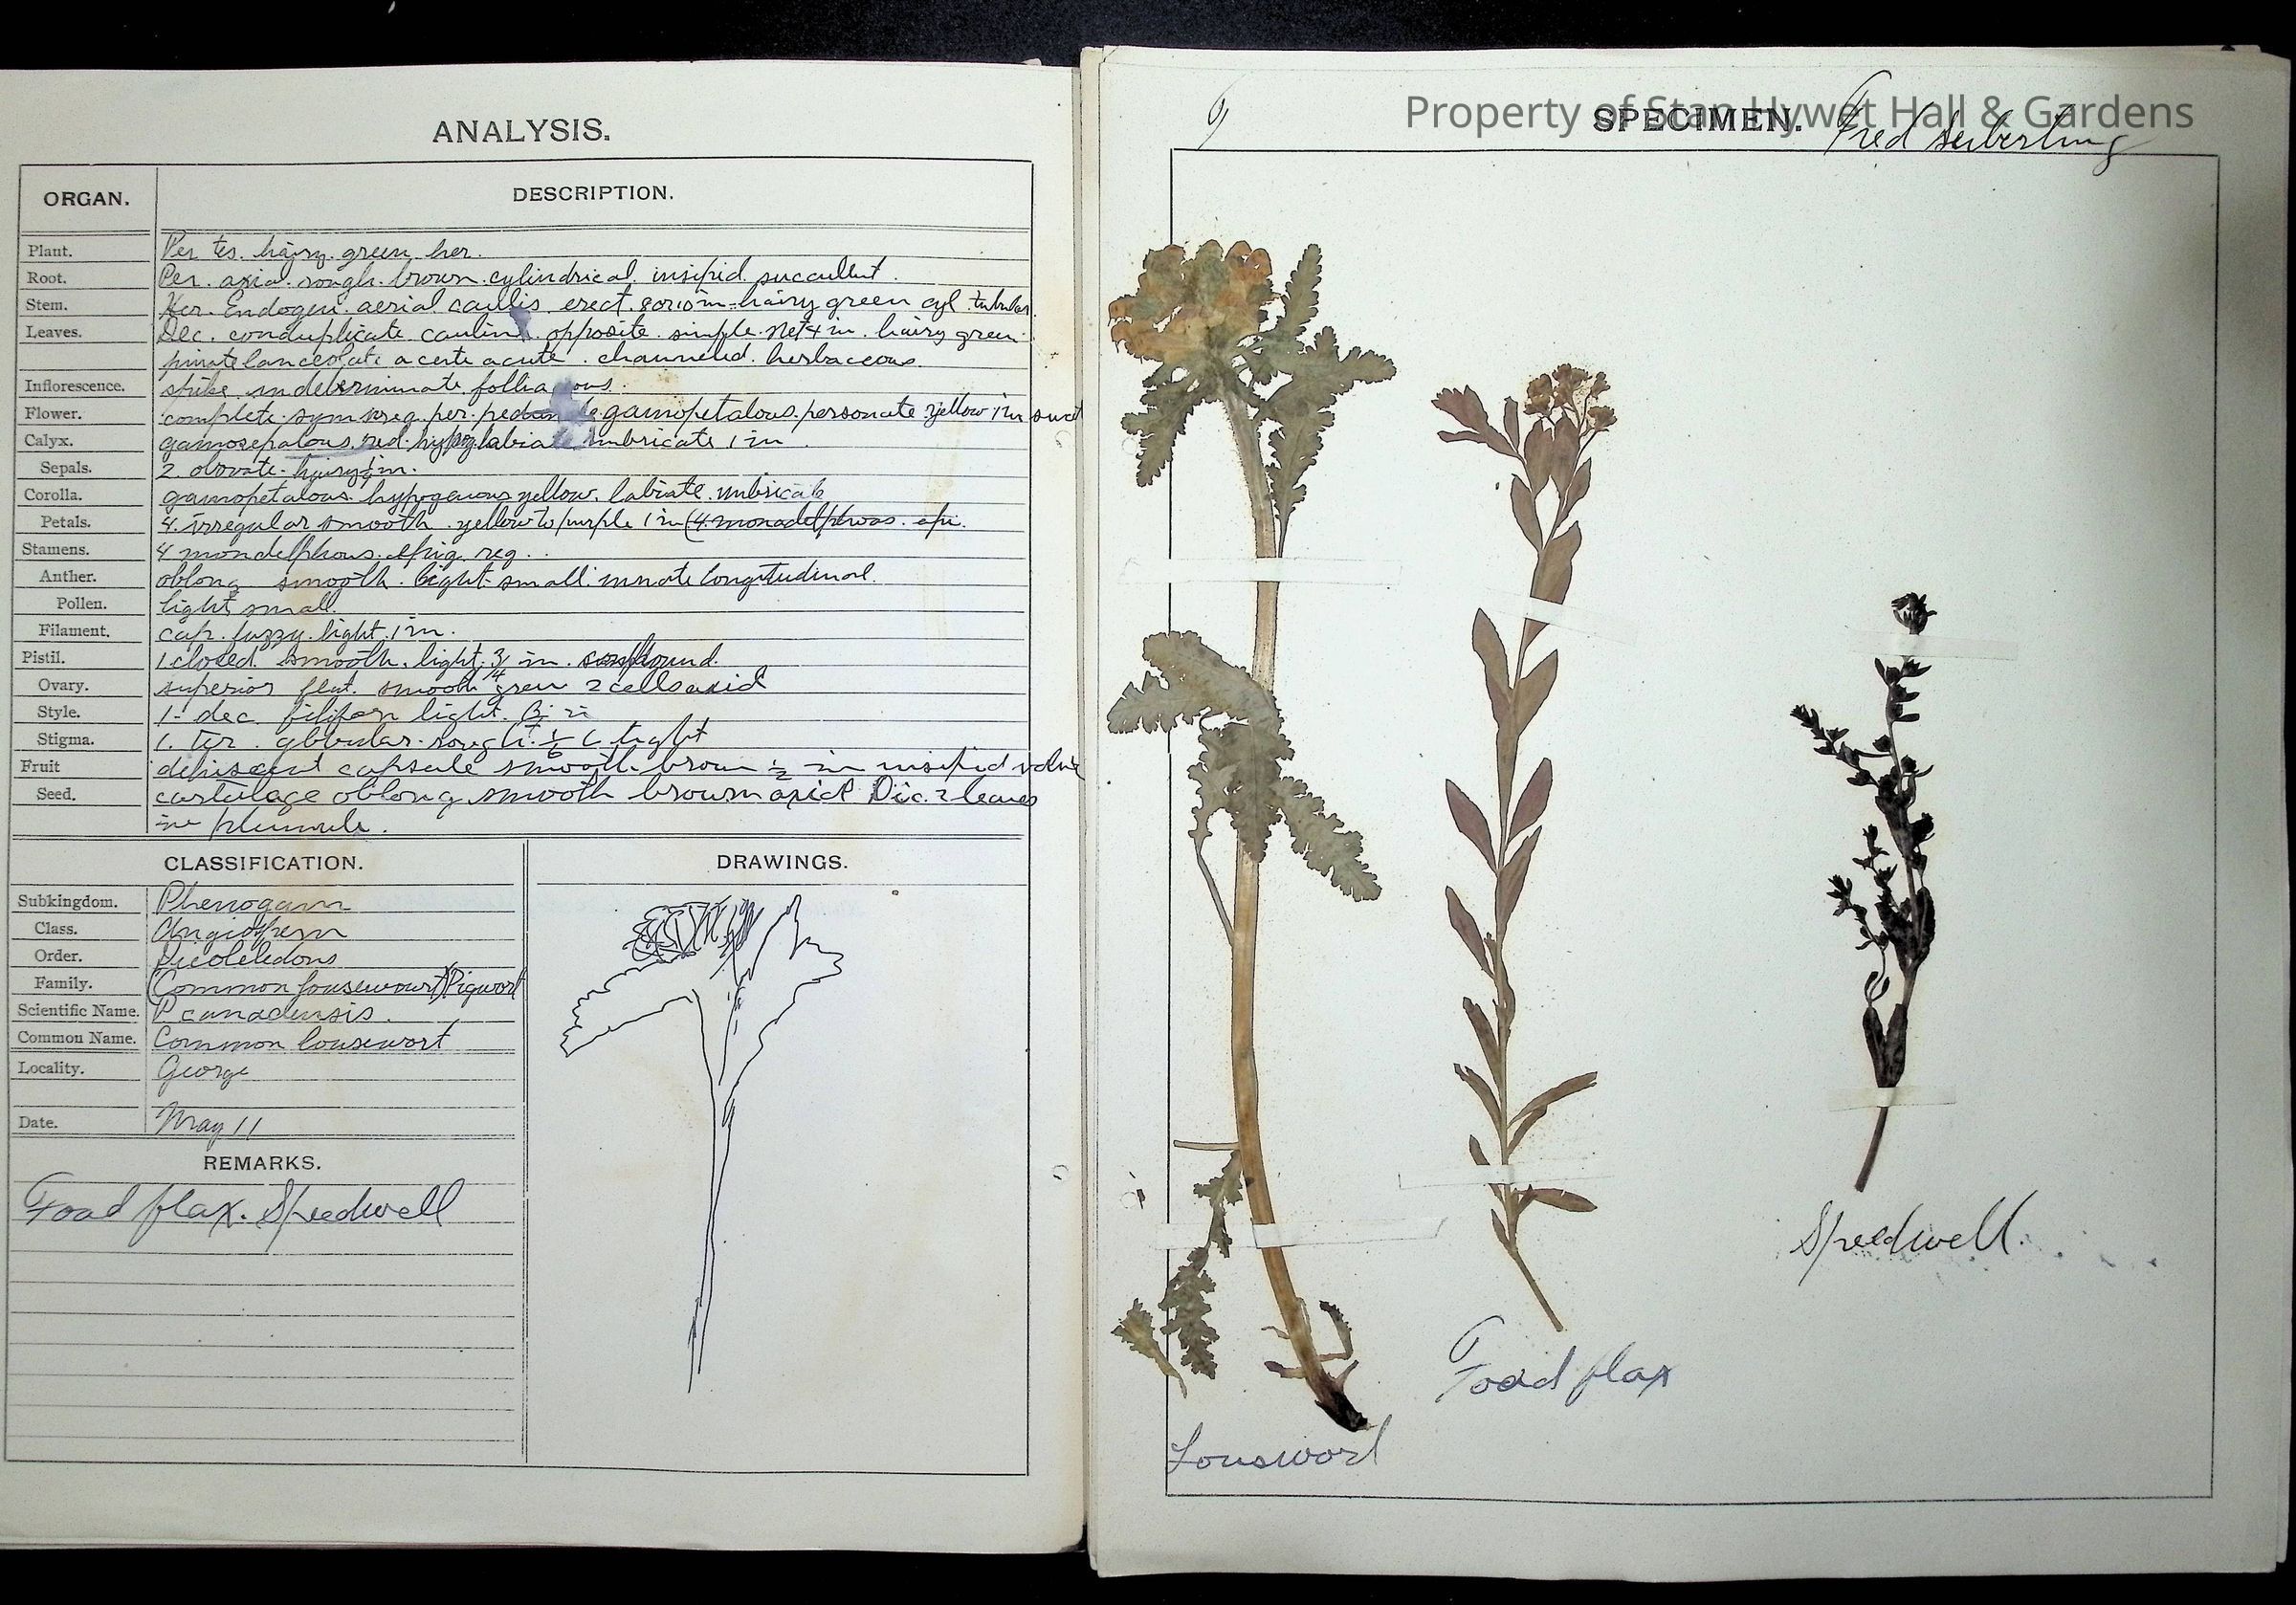 ANALYSIS.
ORGAN. DESCRIPTION.
Plant. Per ter. hairy. green her.
Root. Per. axial. rough. brown. cylindrical. insipid. succullent.
Stem. Her. Endogen. aerial caullis. erect. 8 or 10 in. hairy green cyl. tubular.
Leaves. Dec. conduplicate. opposite. simple. net 4 in. hairy green.
pinate lanceolate acute. channeled. herbaceous.
Inflorescence. spike. indeterminate
Flower. complete. sym. per. gamopetalous. personate yellow 1 in
Calyx. gamosepalous. red. imbricate 1 in.
Sepals. 2. obovate. hairy in.
Corolla. gamopetalous. hypogenous yellow. labiate. imbricate
Petals. 4. irregular smooth. yellow to purple 1 in (4. monadelphous. epi.
Stamens. 4 mondelphous. epig. reg.
Anther. oblong smooth. light. small innate longitudinal.
Pollen. light small.
Filament. cap. fuzzy. light. 1 in.
Pistil. 1 closed smooth. light. 3/4 in. compound.
Ovary. superior flat. smooth green 2 cells
Style. 1- dec. filiform light.
Stigma. 1. ter. globular. rough. light
Fruit dehiscent capsule smooth brown 1/2 in insipid
Seed. oblong smooth brown Dic. 2 leaves
in plumule.
CLASSIFICATION. DRAWINGS.
Subkingdom. Phenogam
Class. Angiosperm
Order. Dicoteledons
Family. (Common lousewourt) Figwort
Scientific Name. P canadensis.
Common Name. Common lousewort
Locality. George
Date. May 11
REMARKS.
Toad flax. Speedwell
9
Property of Stan Hywet Hall & Gardens
SPECIMEN. Fred Seiberling
Speedwell.
Toad flax
Louswort